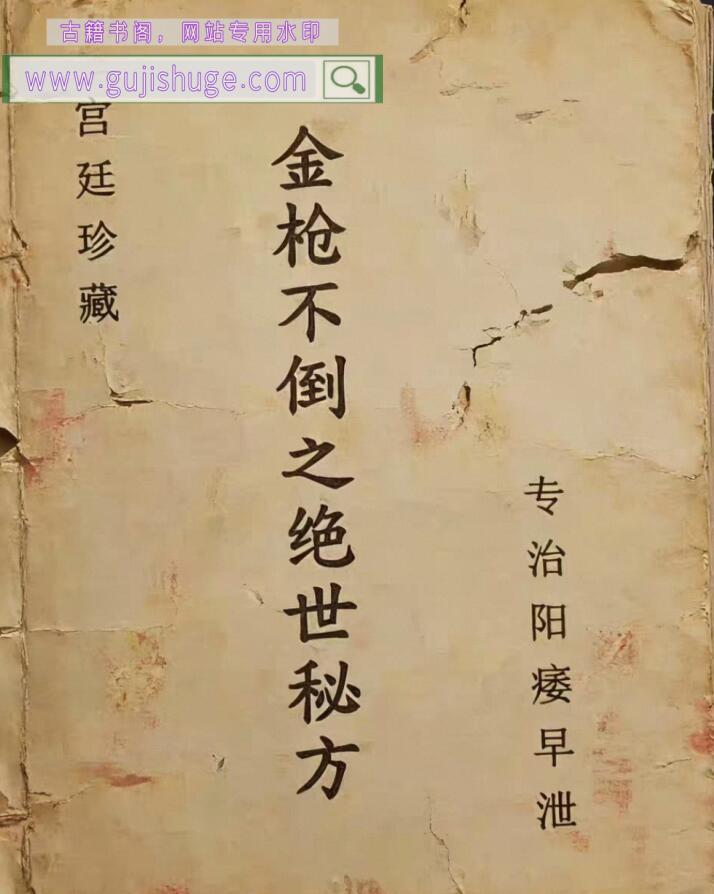 古籍书阁，网站专用水印
www.gujishuge.com
宫廷珍藏
金枪不倒之绝世秘方
专治阳痿早泄